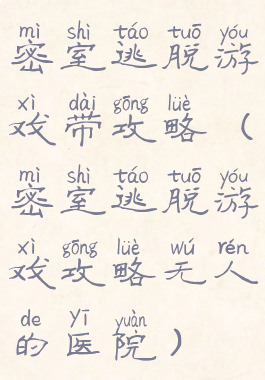 mì shì táo tuō yóu
密室逃脱游
xì dài gōng lüè
戏带攻略（
mì shì táo tuō yóu
密室逃脱游
xì gōng lüè wú rén
戏攻略无人
de yī yuàn
的医院）